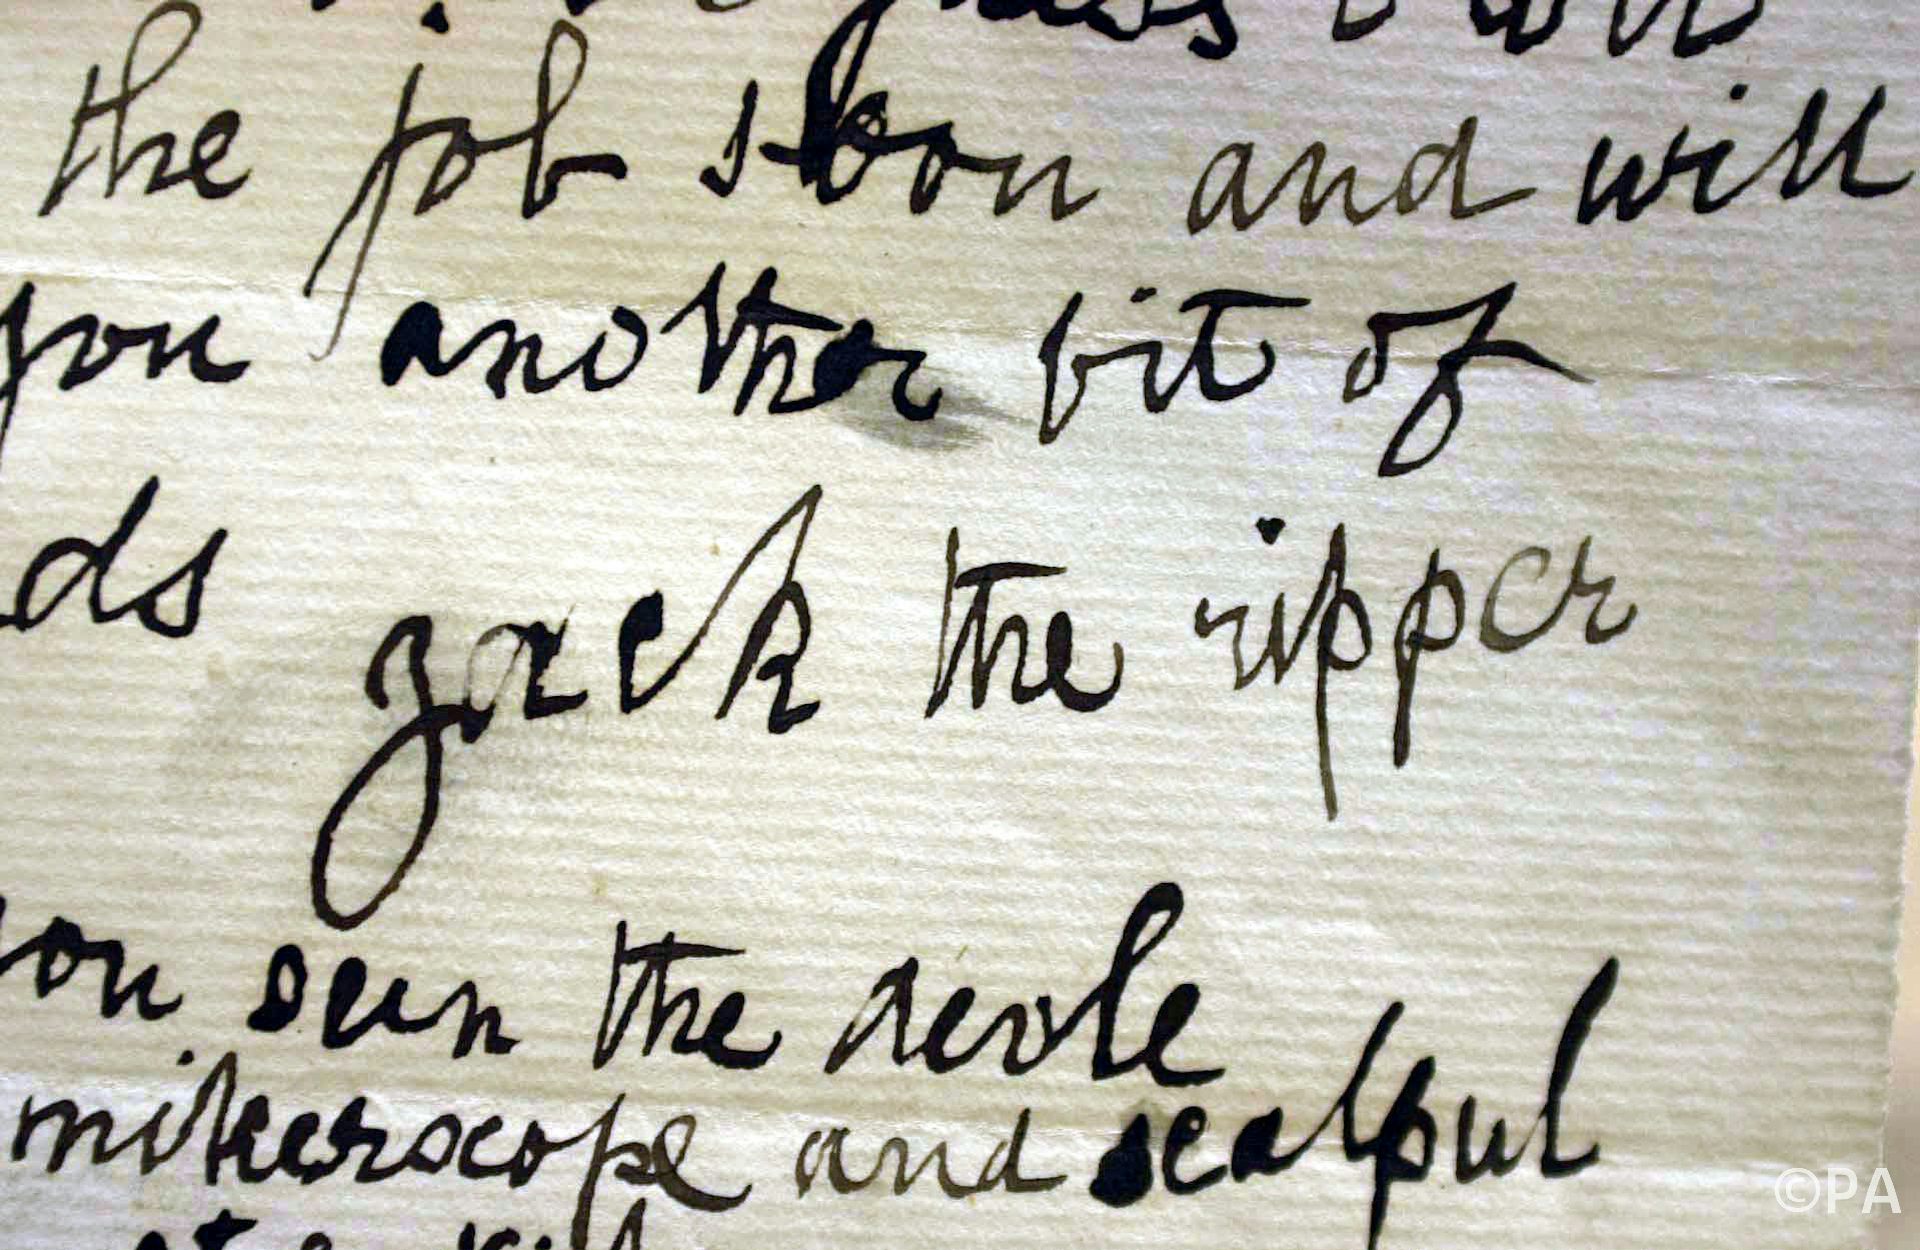 the job soon and will
you another bit of
ds
Jack the ripper
you seen the devle
mikerscope and scalpul
©PA